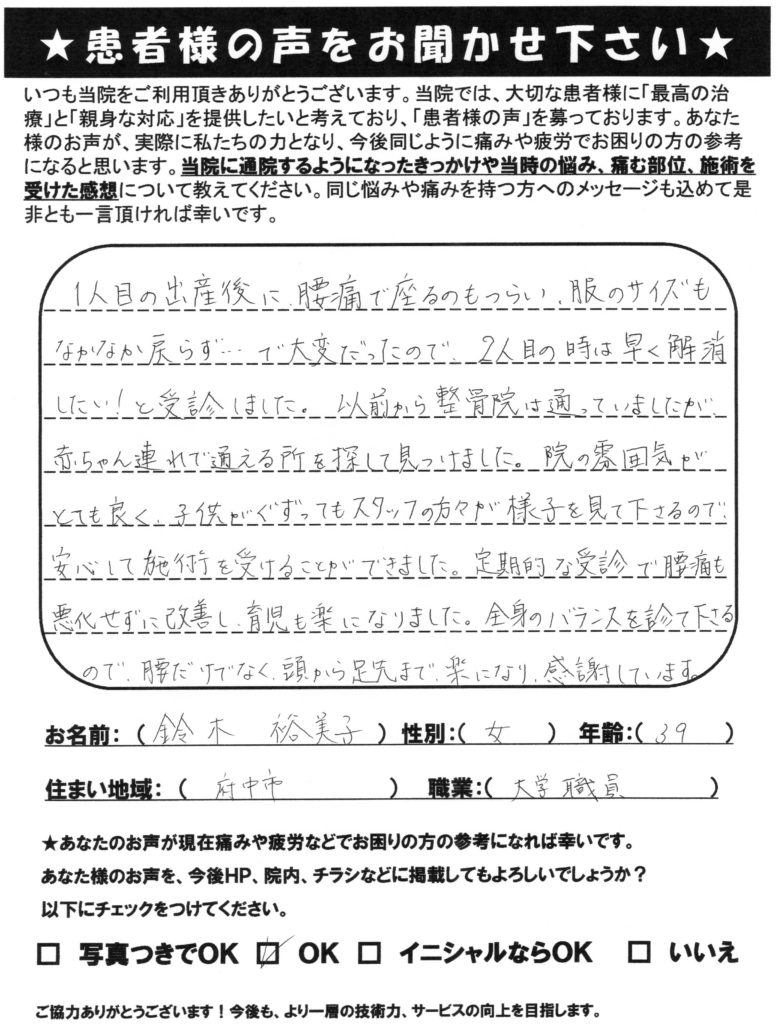 ★患者様の声をお聞かせ下さい★
いつも当院をご利用頂きありがとうございます。当院では、大切な患者様に「最高の治
療」と「親身な対応」を提供したいと考えており、「患者様の声」を募っております。あなた
様のお声が、実際に私たちの力となり、今後同じように痛みや疲労でお困りの方の参考
になると思います。当院に通院するようになったきっかけや当時の悩み、痛む部位、施術を
受けた感想について教えてください。同じ悩みや痛みを持つ方へのメッセージも込めて是
非とも一言頂ければ幸いです。
1人目の出産後に、腰痛で座るのもつらい、服のサイズも
なかなか戻らず…で大変だったので、2人目の時は早く解消
したい!と受診しました。以前から整骨院は通っていましたが、
赤ちゃん連れで通える所を探して見つけました。院の雰囲気が
とても良く、子供がぐずってもスタッフの方々が様子を見て下さるので、
安心して施術を受けることができました。定期的な受診で腰痛も
悪化せずに改善し、育児も楽になりました。全身のバランスを診て下さる
ので、腰だけでなく、頭から足先まで、楽になり、感謝しています。
お名前:(鈴木 裕美子) 性別:(女) 年齢:(39)
住まい地域:(府中市) 職業:(大学職員)
★あなたのお声が現在痛みや疲労などでお困りの方の参考になれば幸いです。
あなた様のお声を、今後HP、院内、チラシなどに掲載してもよろしいでしょうか?
以下にチェックをつけてください。
□ 写真つきでOK ☑ OK □ イニシャルならOK □ いいえ
ご協力ありがとうございます!今後も、より一層の技術力、サービスの向上を目指します。